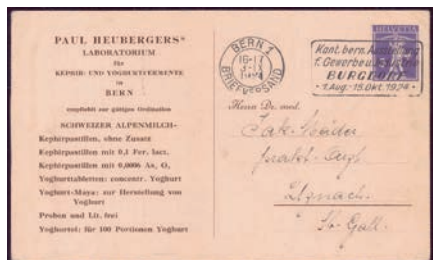 PAUL HEUBERGERS
LABORATORIUM
für
KEPHIR- UND YOGHURTFERMENTE
in
BERN
empfiehlt zur gütigen Ordination
SCHWEIZER ALPENMILCH-
Kephirpastillen, ohne Zusatz
Kephirpastillen mit 0,1 Fer. lact.
Kephirpastillen mit 0,0006 As₂ O₃
Yoghurttabletten: concentr. Yoghurt
Yoghurt-Maya: zur Herstellung von
Yoghurt
Proben und Lit. frei
Yoghortol: für 100 Portionen Yoghurt
BERN 1
16-17
BRIEFVERSAND
HELVETIA
Kant. bern. Ausstellung
f. Gewerbe
BURGDORF
1. Aug.-15. Okt. 1924
Herrn Dr. med.
prakt. Arzt
Uznach
St. Gall.